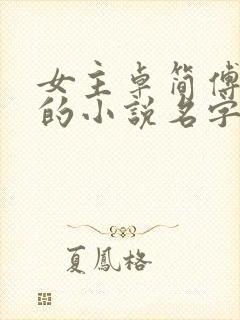 女主卓簡傅
的小說名字
夏鳳格